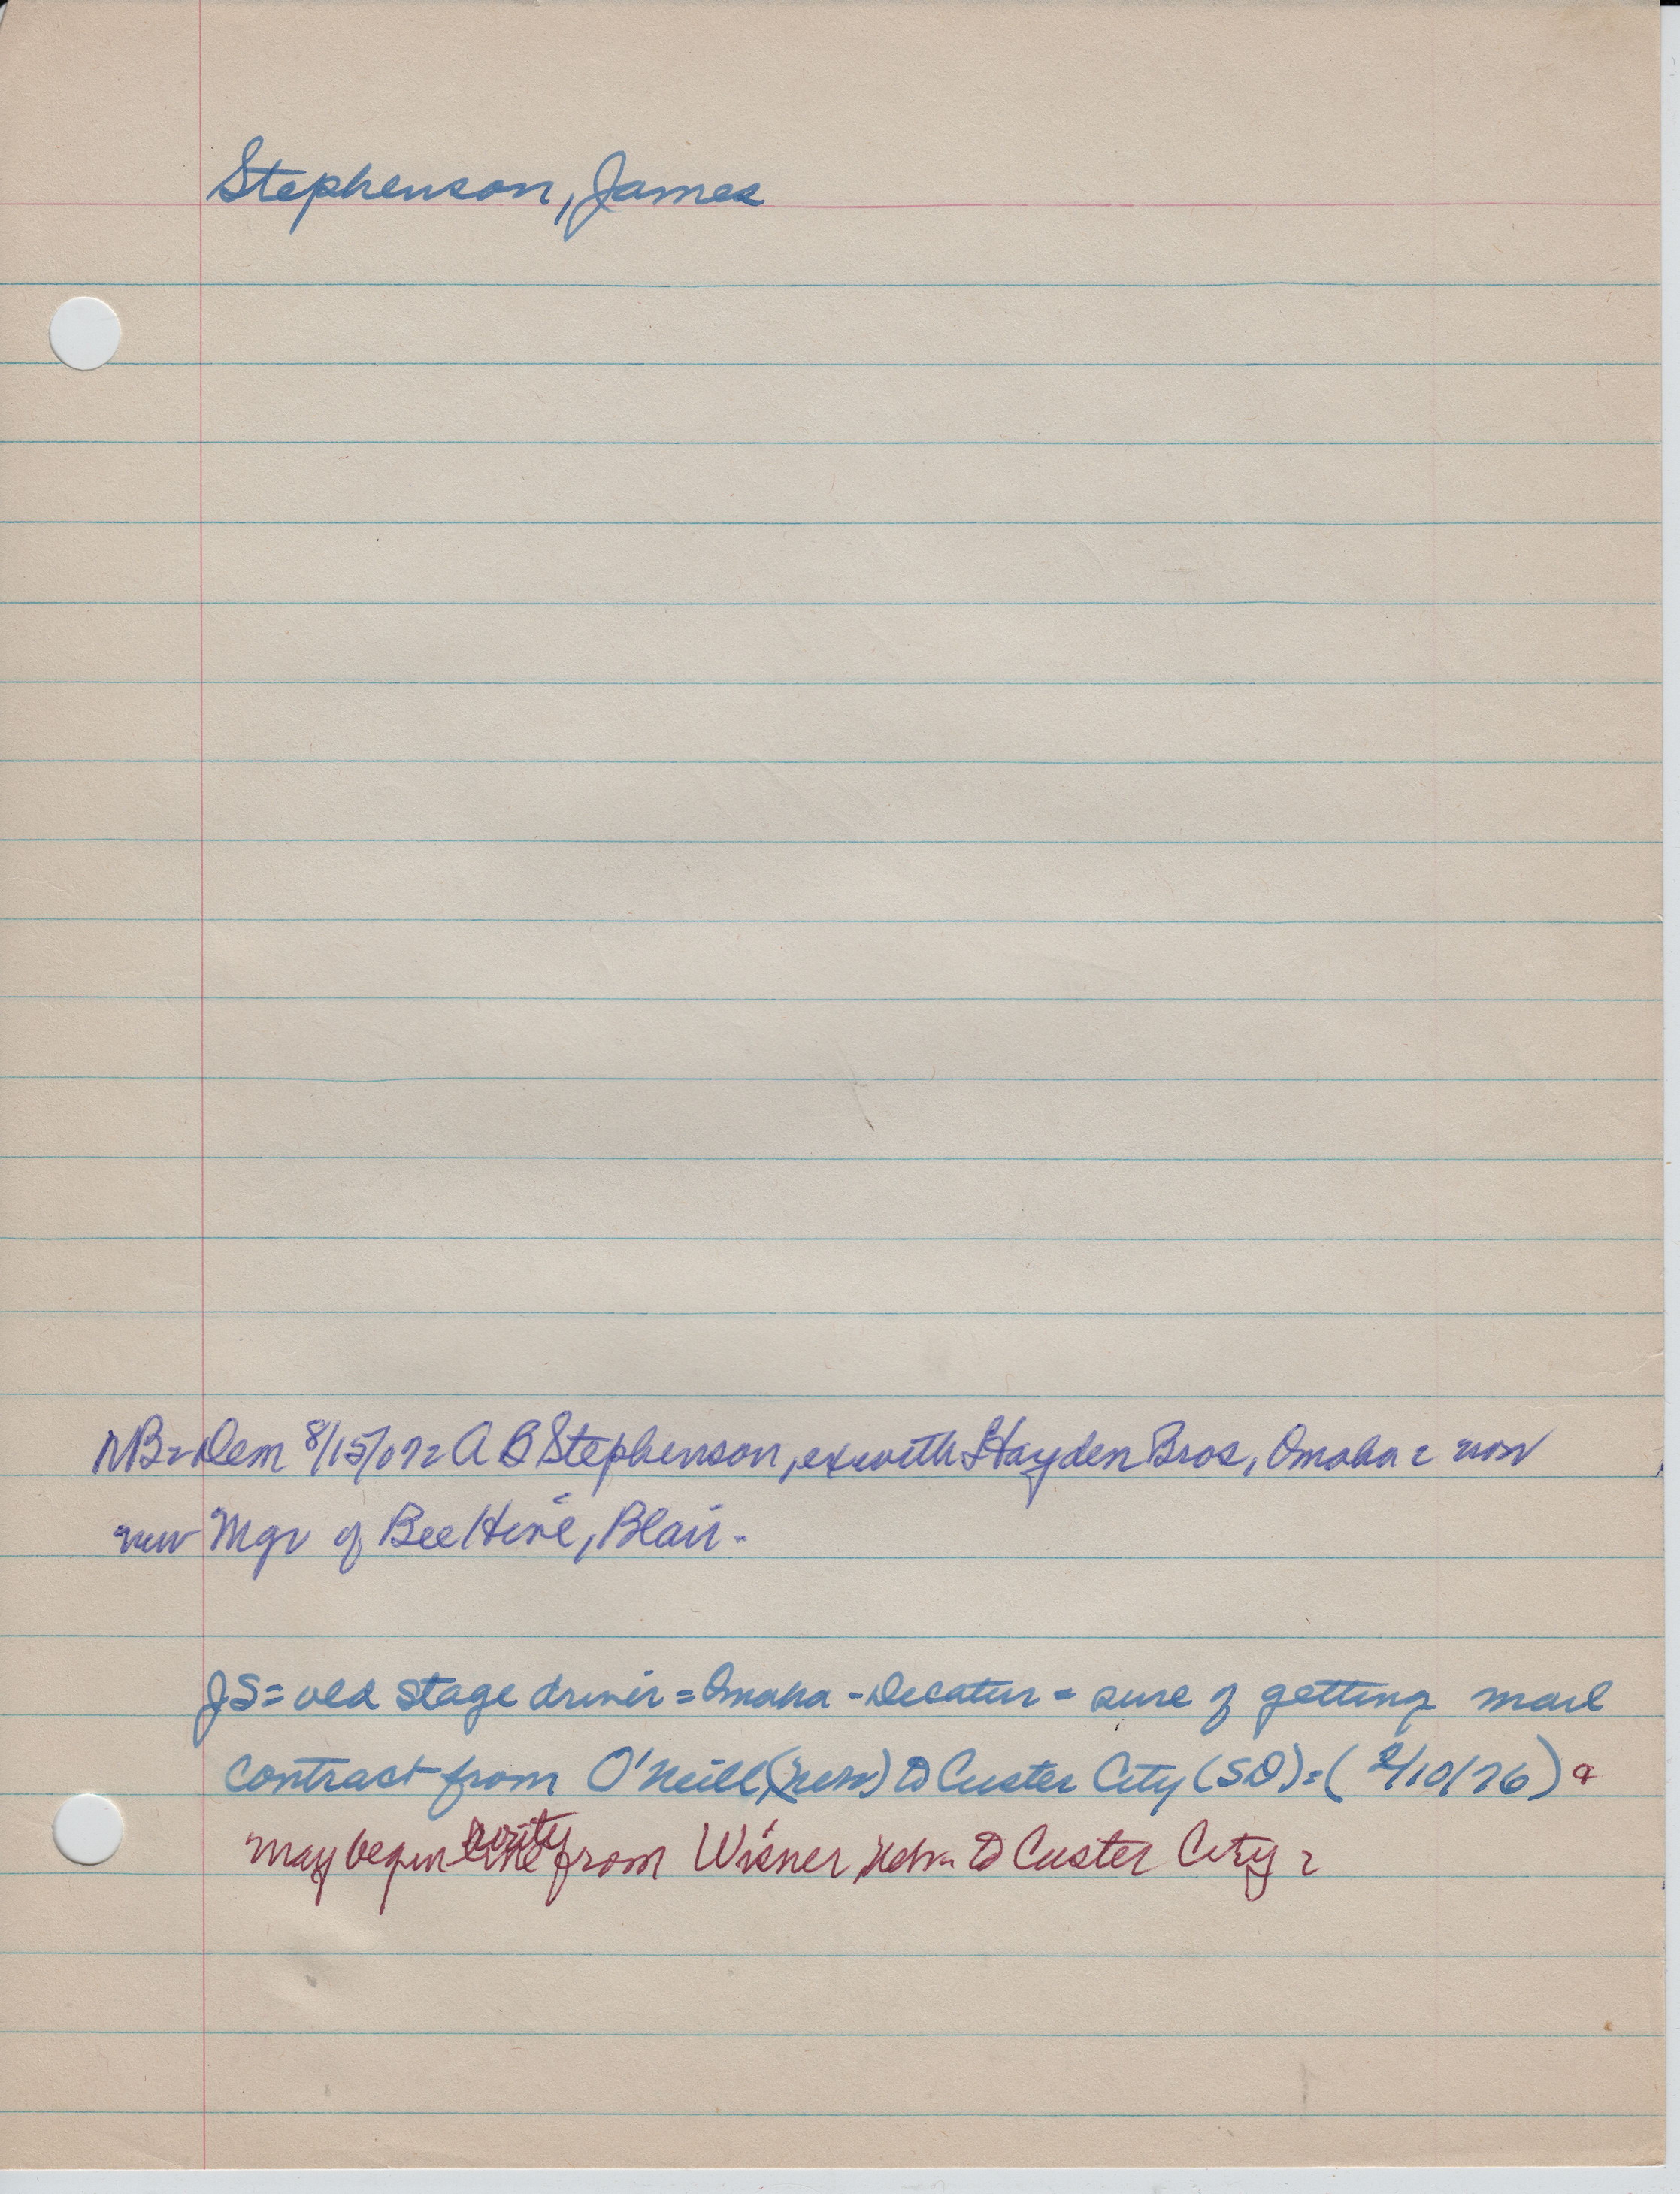 Stephenson, James
NB=Dem 8/15/07= A B Stephenson, ex with Hayden Bros, Omaha = now
new Mgr of Bee Hive, Blair.
JS= old stage driver = Omaha - Decatur = sure of getting mail
contract from O'Neill, (Neb) to Custer City (SD)=( 2/10/76) &
may begin from Wisner, Nebr to Custer City =